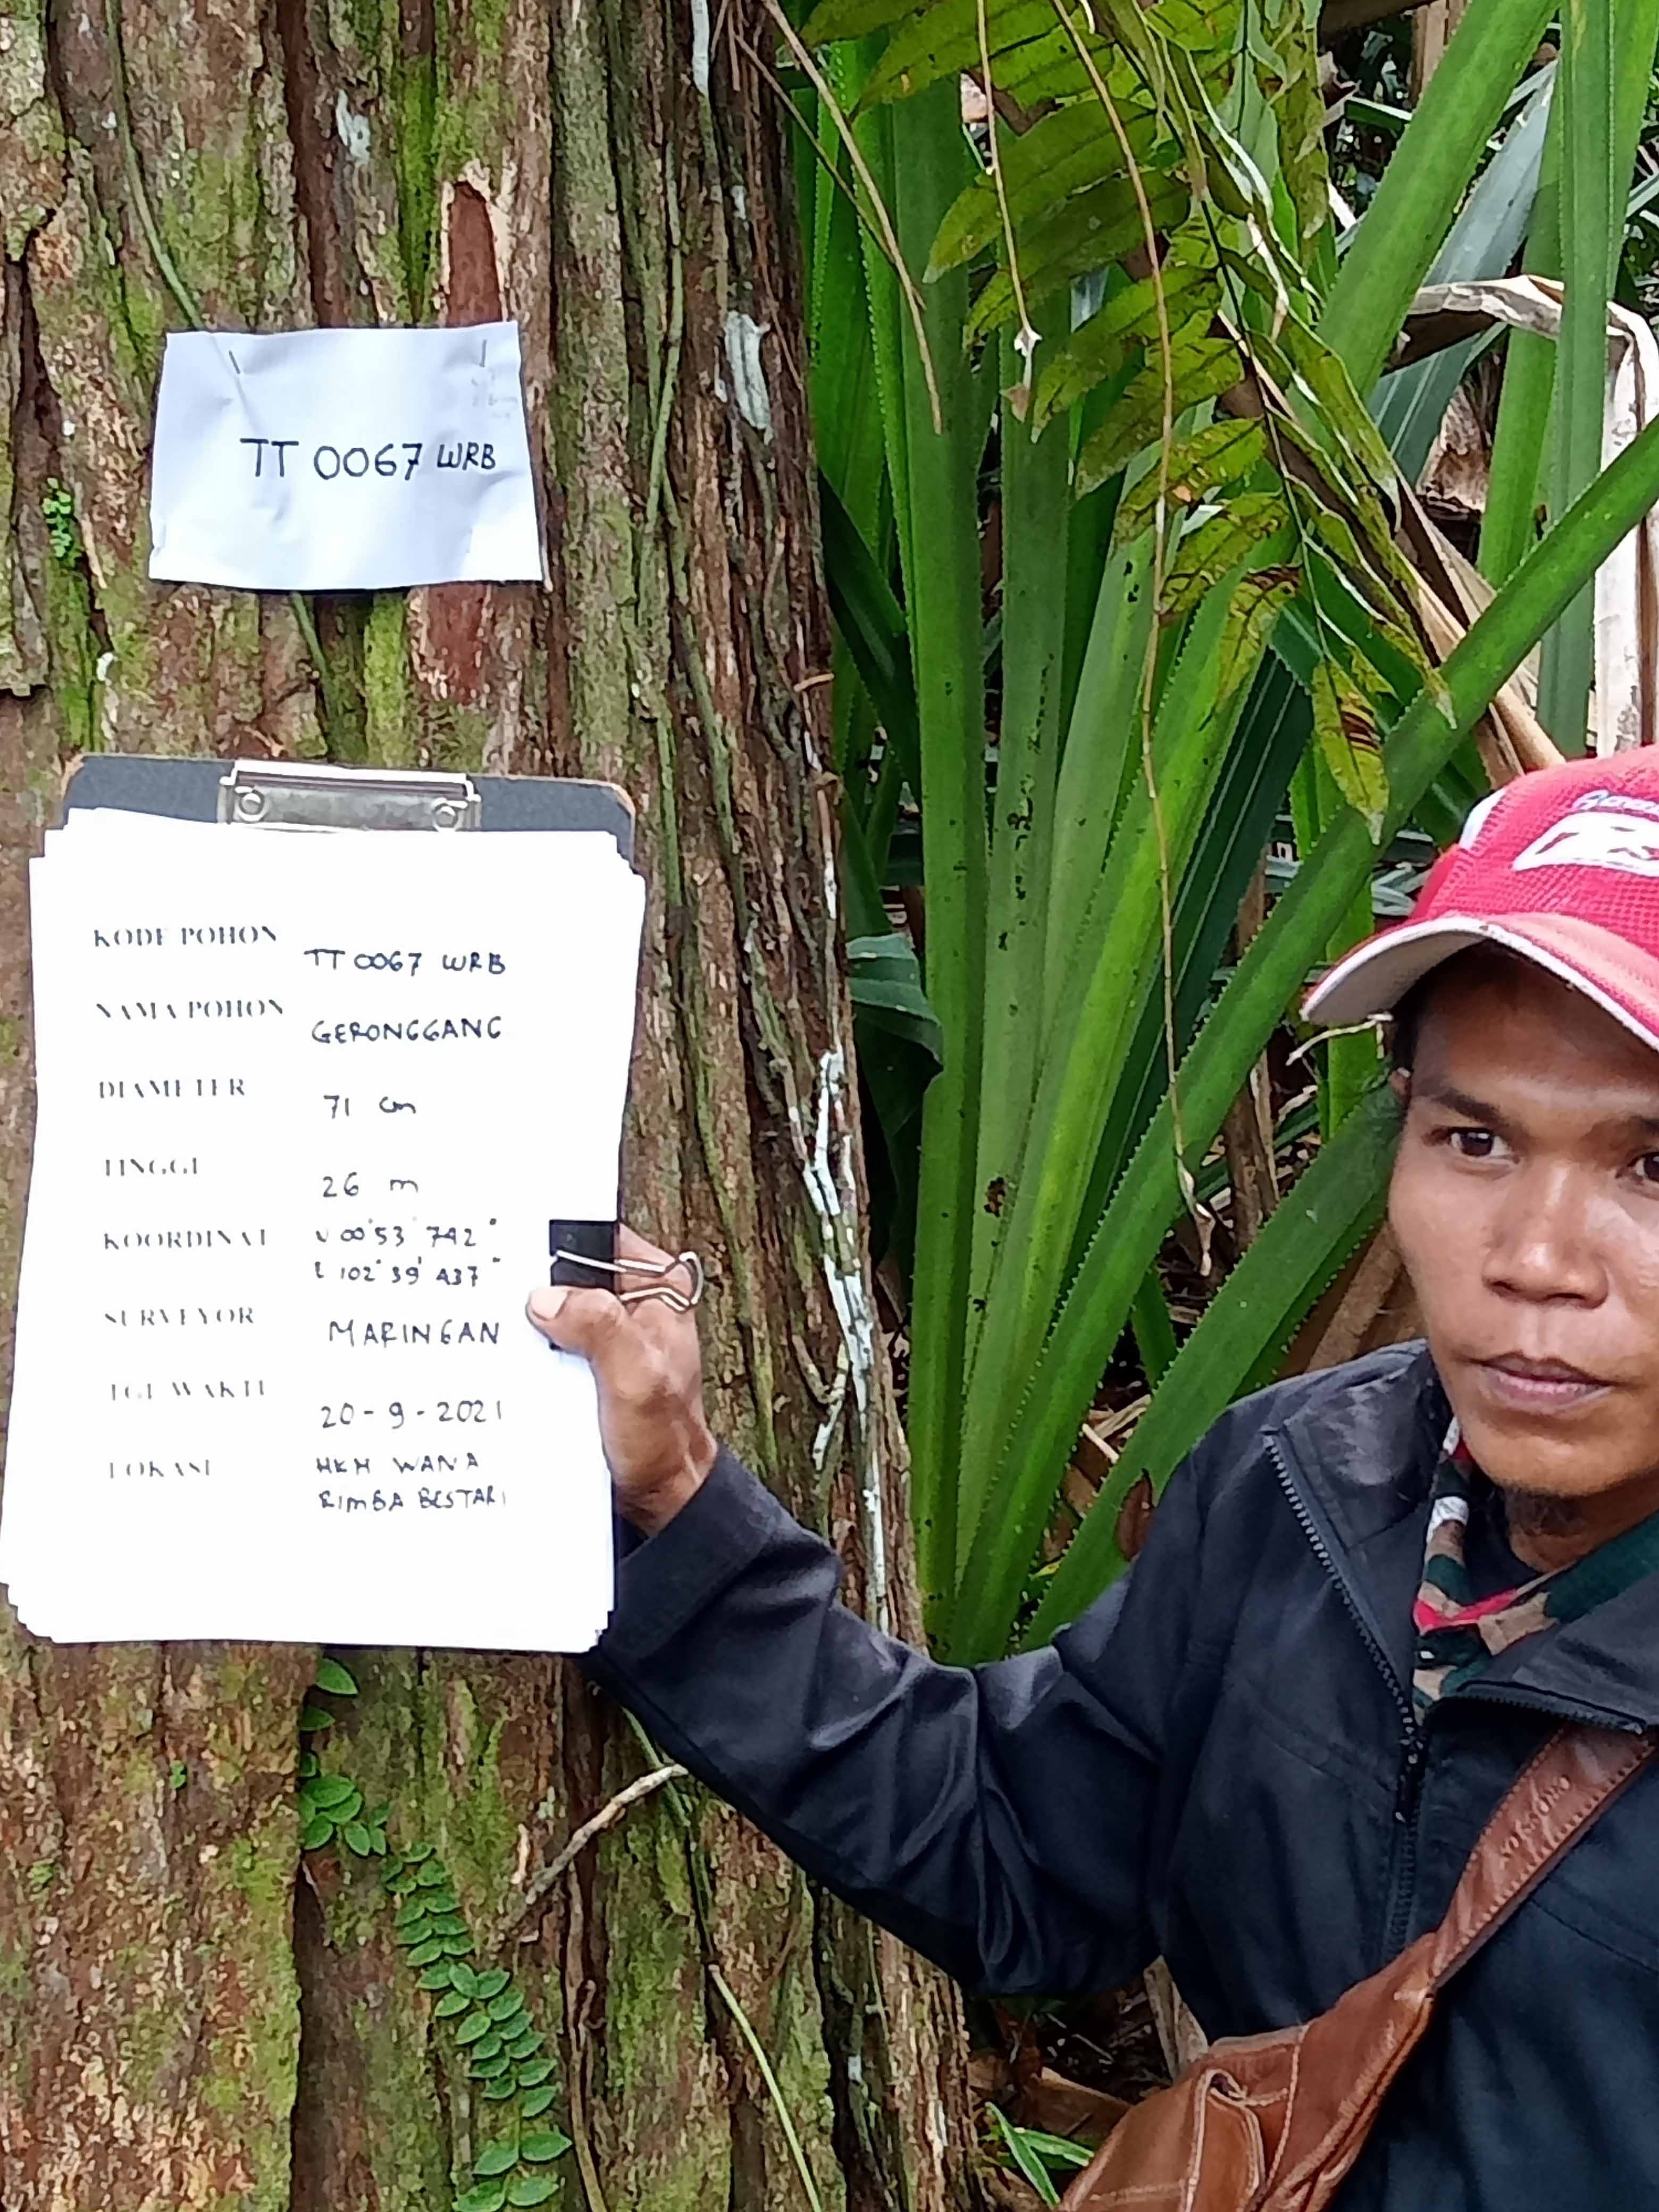 TT 0067 WRB
KODE POHON
TT 0067 WRB
NAMA POHON
GERONGGANG
DIAMETER
71 cm
TINGGI
26 m
KOORDINAT
N 00° 53' 742"
E 102° 39' 437"
SURVEYOR
MARINGAN
TGL WAKTU
20-9-2021
LOKASI
HKM WANA
RIMBA BESTARI